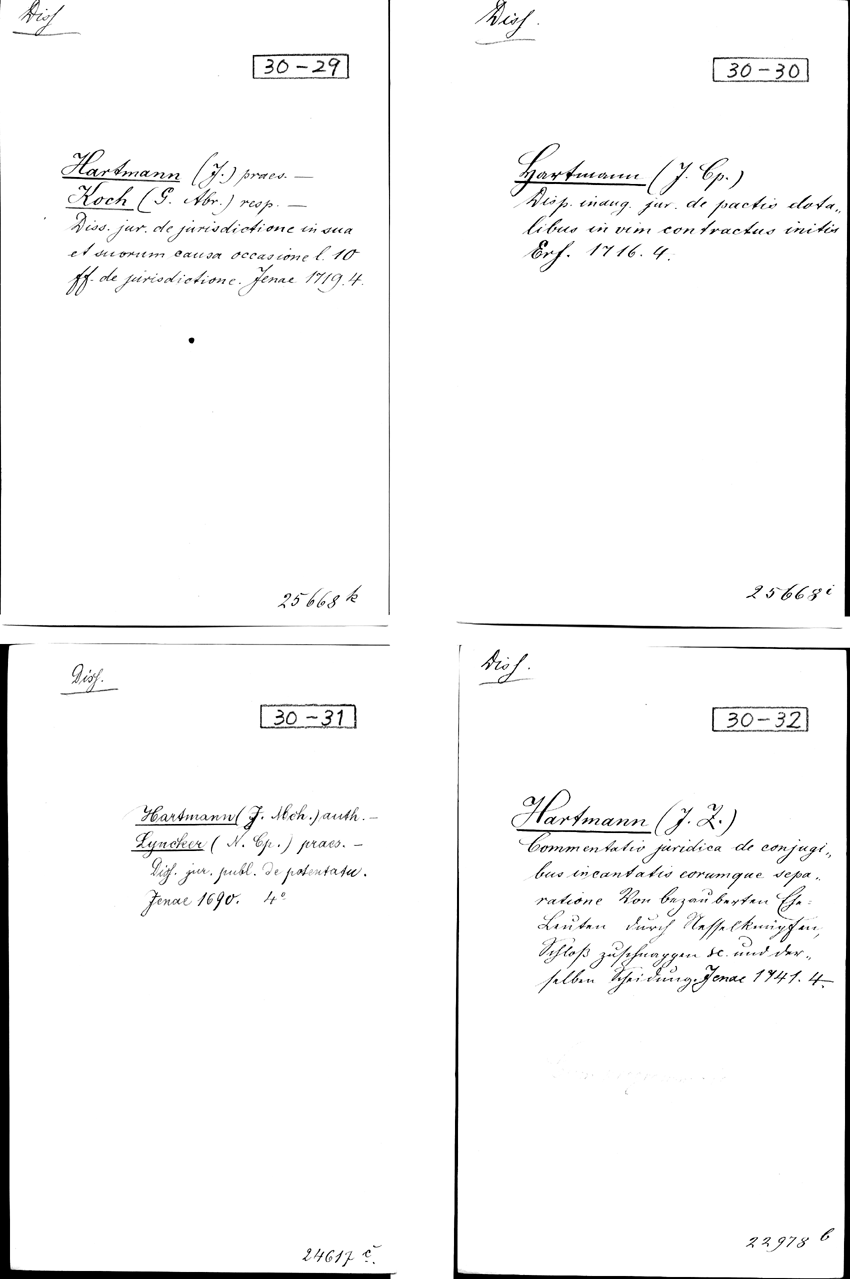 Diss
30-29
Hartmann (J.) praes. —
Koch (G. Abr.) resp. —
Diss. jur. de jurisdictione in sua
et suorum causa occasione l. 10
ff. de jurisdictione. Jenae 1719. 4.
25668 k
Diss.
30-30
Hartmann (J. Cp.)
Disp. inaug. jur. de pactis dota„
libus in vim contractus initis
Erf. 1716. 4.
25668 i
Diss.
30-31
Hartmann (J. Mch.) auth. —
Lyncker (N. Cp.) praes. —
Diss. jur. publ. de potentatu.
Jenae 1690. 4°
24617 c.
Diss.
30-32
Hartmann (J. Z.)
Commentatio juridica de conjugi„
bus incantatis eorumque sepa„
ratione Von bezauberten Ehe-
Leuten durch Nesselknüpfen,
Schloß zuschnappen &c. und der„
selben Scheidung. Jenae 1741. 4.
22978 b